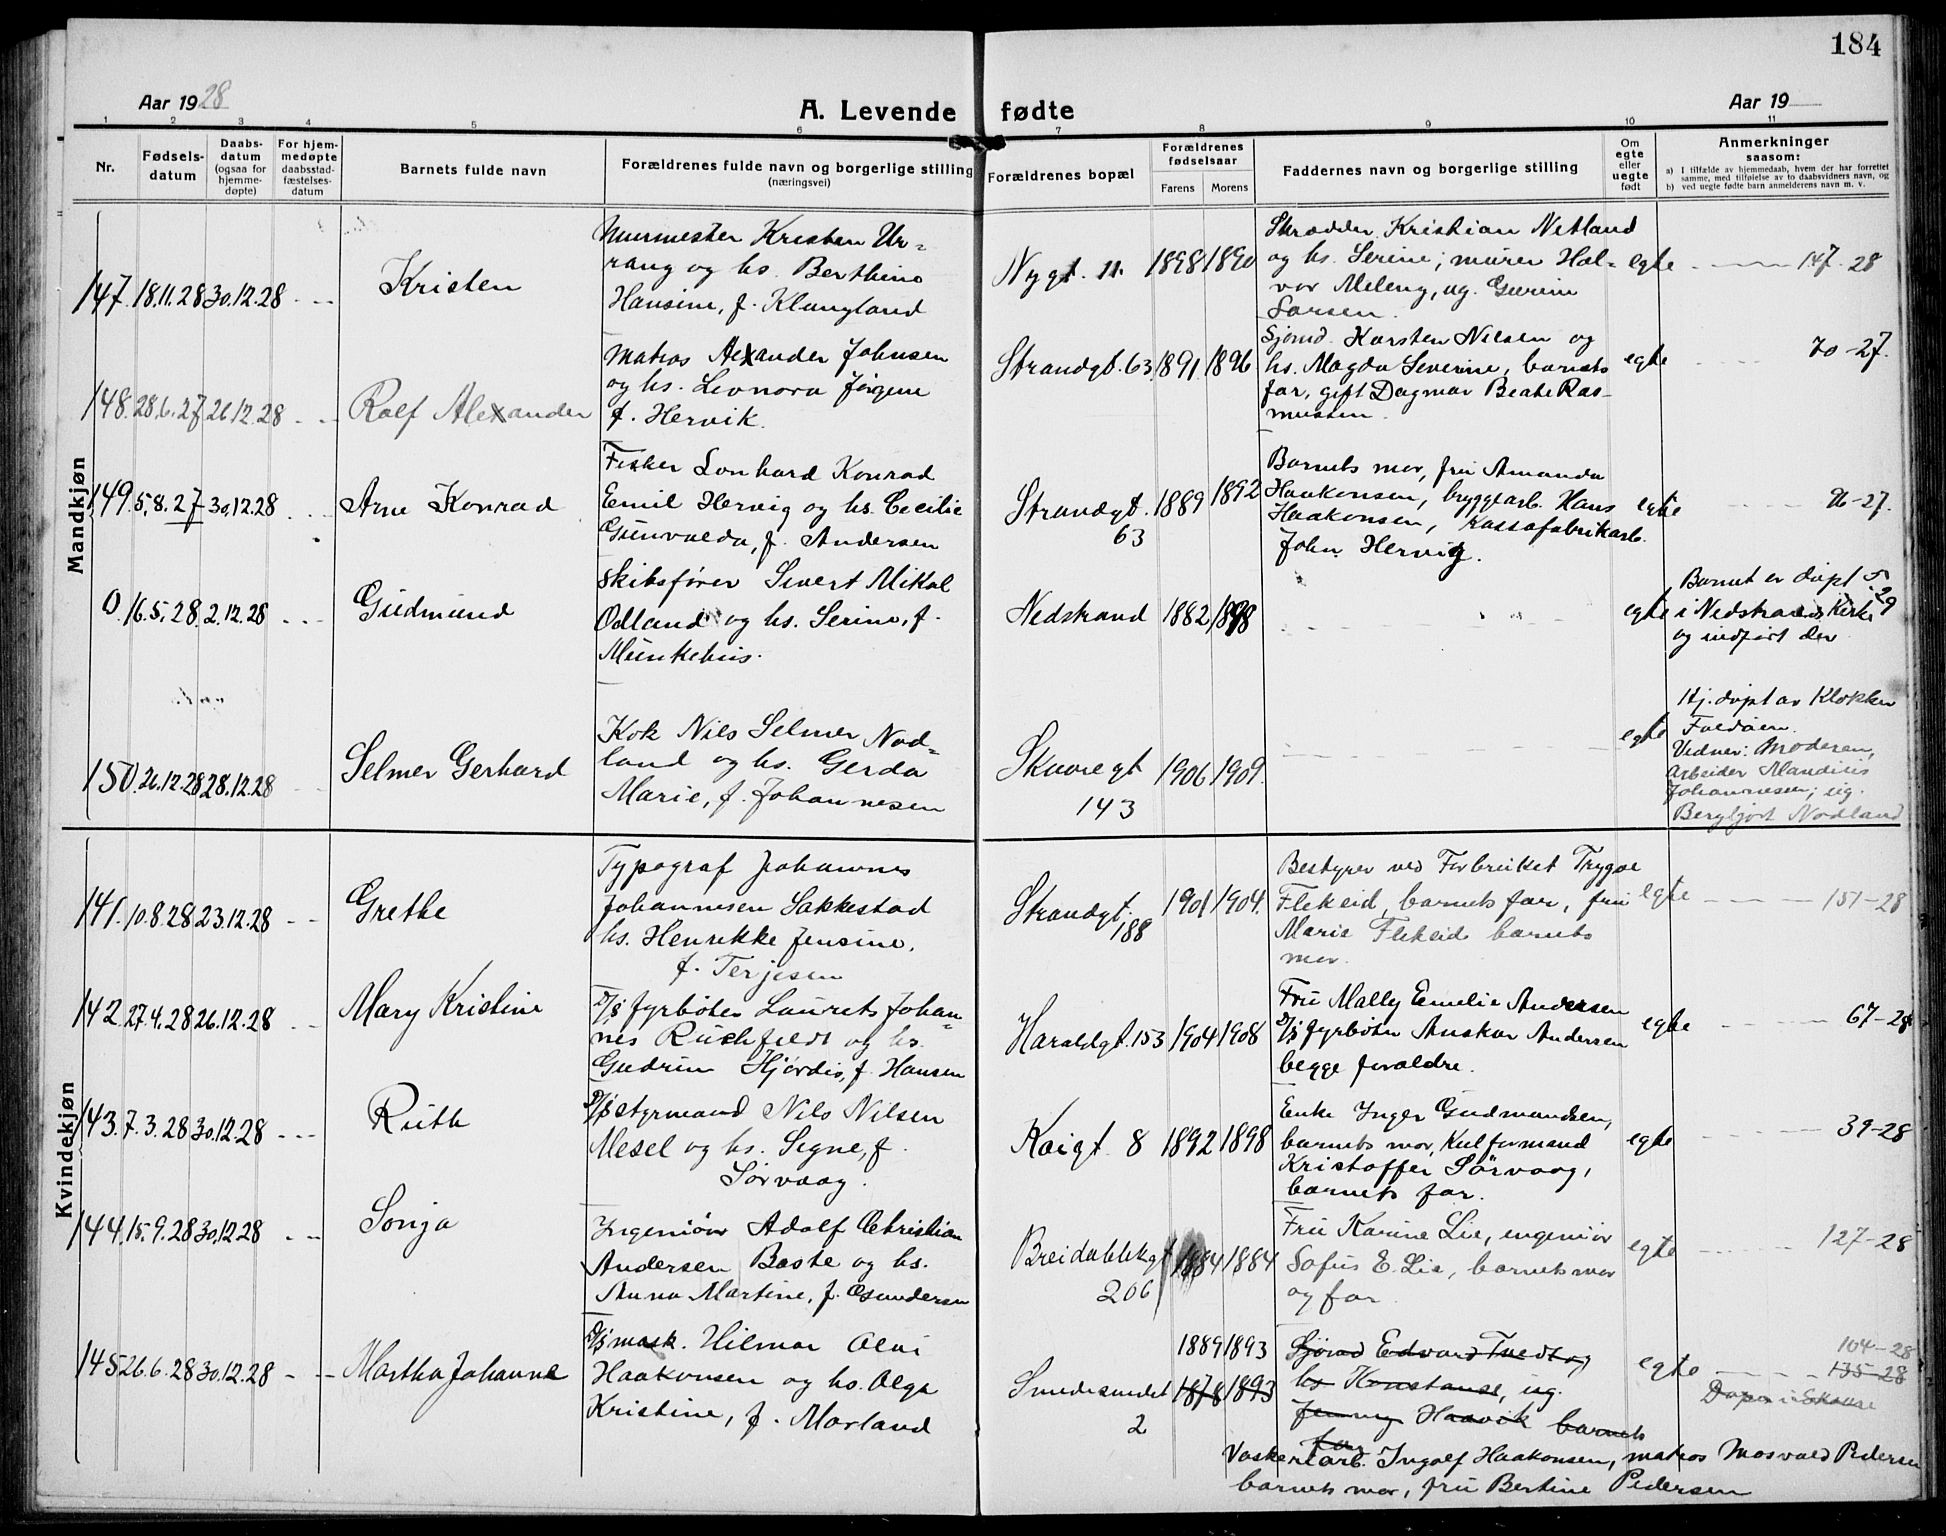 184
Aar 1928
A. Levende fødte
Aar 19
1 2 3 4 5 6 7 8 9 10 11
Nr.
Fødsels-
datum
Daabs-
datum
(ogsaa for
hjemme-
døpte)
For hjem-
medøpte
daabsstad-
fæstelses-
datum
Barnets fulde navn
Forældrenes fulde navn og borgerlige stilling
(næringsvei)
Forældrenes bopæl
Forældrenes
fødselsaar
Farens Morens
Faddernes navn og borgerlige stilling
Om
egte
eller
uegte
født
Anmerkninger
saasom:
a) I tilfælde av hjemmedaab, hvem der har forrettet
samme, med tilføielse av to daabsvidners navn, og
b) ved uegte fødte barn anmelderens navn m. v.
Mandkjøn
147. 18.11.28 30.12.28
Kristen
Murmester Kristen Ur-
rang og hs. Berthine
Hansine, f. Klungland
Nygt. 11. 1898 1890
Skrædder Kristian Netland
og hs. Serine; murer Hal-
vor Meleng, ug. Gurine
Larsen.
egte 147-28
148. 28.6.27 26.12.28
Rolf Alexander
Matros Alexander Johnsen
og hs. Leonora Jørgine
f. Hervik.
Strandgt. 63. 1891. 1896
Sjømd. Karsten Nilsen og
hs. Magda Severine, barnets
far, gift Dagmar Beate Ras-
mussen.
egte 70-27.
149. 5.8.27 30.12.28
Arne Konrad
Fisker Lonhard Konrad
Emil Hervig og hs. Cecilie
Gunvalda, f. Andersen
Strandgt.
63
1889 1892
Barnets mor, fru Amanda
Haakonsen, bryggearb. Hans
Haakonsen, Kassafabrikarb.
John Hervig.
egte 96-27.
0 16.5.28. 2.12.28
Gudmund
Skibsfører Sivert Mikal
Odland og hs. Serine, f.
Munkehus.
Nedstrand 1882 1898
egte
Barnet er døpt
i Nedstrands Kirke
og indført der
150. 26.12.28 28.12.28
Selmer Gerhard
Kok Nils Selmer Nod-
land og hs. Gerda
Marie, f. Johannesen
Skaaregt
143
1906 1909.
egte
Hj. døpt av Klokker
Foldøen.
Vidner: Moderen,
Arbeider Mandius
Johannesen; ug.
Bergljot Nodland
Kvindekjøn
141. 10.8.28 23.12.28
Grethe
Typograf Johannes
Johannesen Sakkestad
hs. Henrikke Jensine,
f. Terjesen
Strandgt.
188
1901 1904.
Bestyrer ved Forbruket Trygve
Flekeid, barnets far, fru
Marie Flekeid barnets
mor.
egte 151-28
142. 27.4.28 26.12.28
Mary Kristine
D/s fyrbøter Laurits Johan-
nes Ruchfeldt og hs.
Gudrun Hjørdis, f. Hansen
Haraldgt. 153 1904 1908
Fru Mally Emelie Andersen
D/s fyrbøter Anskar Andersen
begge forældre.
egte 67-28
143. 7.3.28 30.12.28
Ruth
D/s styrmand Nils Nilsen
Mesel og hs. Signe, f.
Sørvaag.
Kaigt. 8 1892 1898
Enke Inger Gudmundsen,
barnets mor, Kulformand
Kristoffer Sørvaag,
barnets far.
egte 39-28
144. 15.9.28 30.12.28
Sonja
Ingeniør Adolf Christian
Andersen Baste og hs.
Anna Martine, f. Osmundsen
Breidablikgt
206
1884 1884
Fru Karine Lie, ingeniør
Sofus E. Lie, barnets mor
og far.
egte 127-28
145 26.6.28 30.12.28
Martha Johanne
D/s mask. Hilmar Olai
Haakonsen og hs. Olga
Kristine, f. Morland
Smedesundet
2
1889 1893
1878 1893
Sjømd Edvard Tvedt og
hs Konstanse, ug.
Jenny Haavik barnets
far
Vaskeriarb. Ingolf Haakonsen, matros Mosvald Pedersen
barnets mor, fru Bertine Pedersen
egte
104-28
135-28
Døpt i Skaare